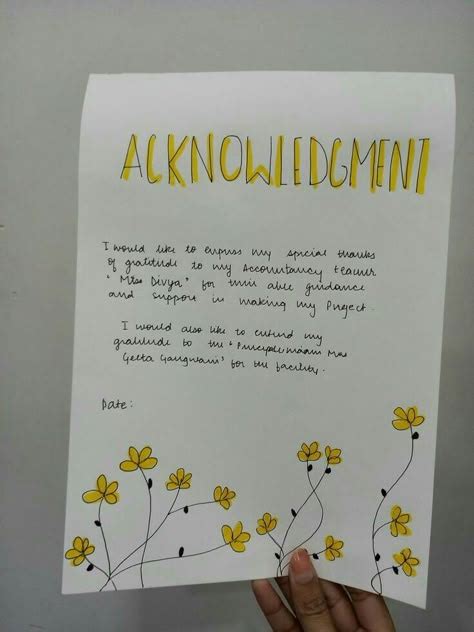 ACKNOWLEDGMENT
I would like to express my special thanks
of gratitude to my Accountancy teacher
"Miss Divya" for their able guidance
and support in making my Project.
I would also like to extend my
gratitude to the "Principle maam Mrs
Geeta Gangwani" for the facility.
Date: